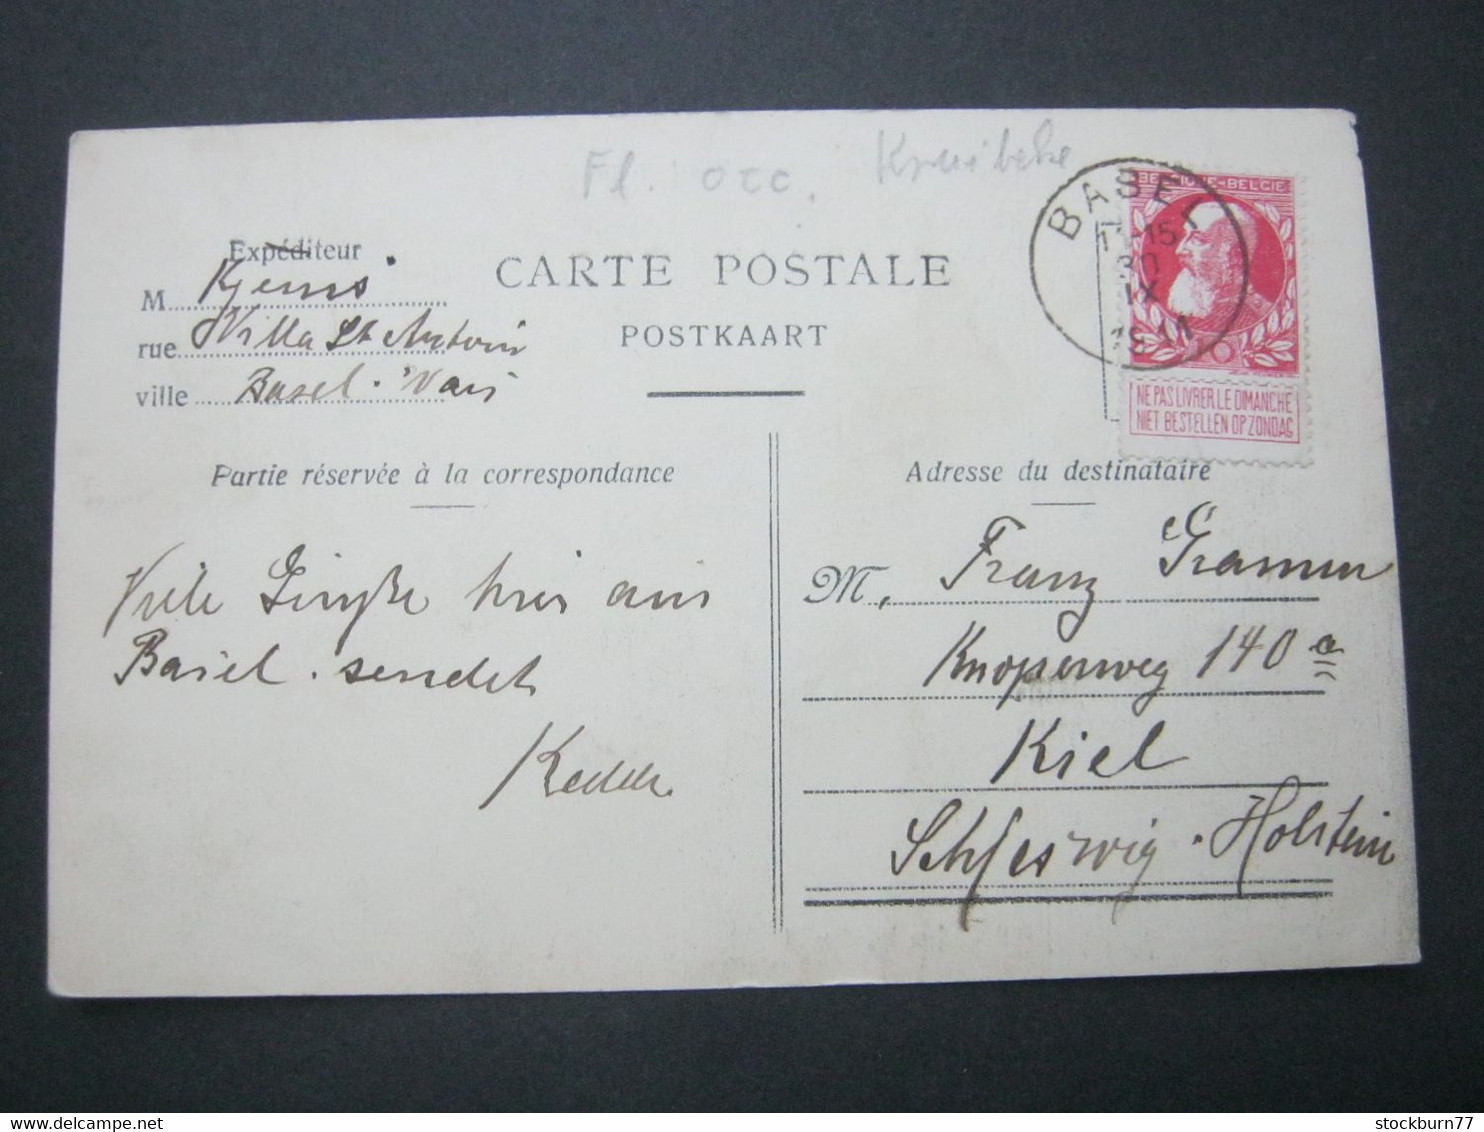 Fl. occ. Kruibeke
Expéditeur
M Kjems
rue Villa St Antoin
ville Basel. Wais
CARTE POSTALE
POSTKAART
BASEL
11-15
30
IX
1911
BELGIQUE-BELGIE
10
NE PAS LIVRER LE DIMANCHE
NIET BESTELLEN OP ZONDAG
Partie réservée à la correspondance
Viele Grüße hier aus
Basel. sendet
Adresse du destinataire
M. Franz Gramm
Knooperweg 140 a
Kiel
Schleswig-Holstein
stockburn77